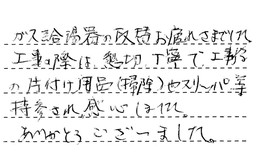 ガス給湯器の取替お疲れさまでした
工事の際は懇切丁寧で工事後
の片付け用品(掃除)やスリッパ等
持参され感心しました。
ありがとうございました。